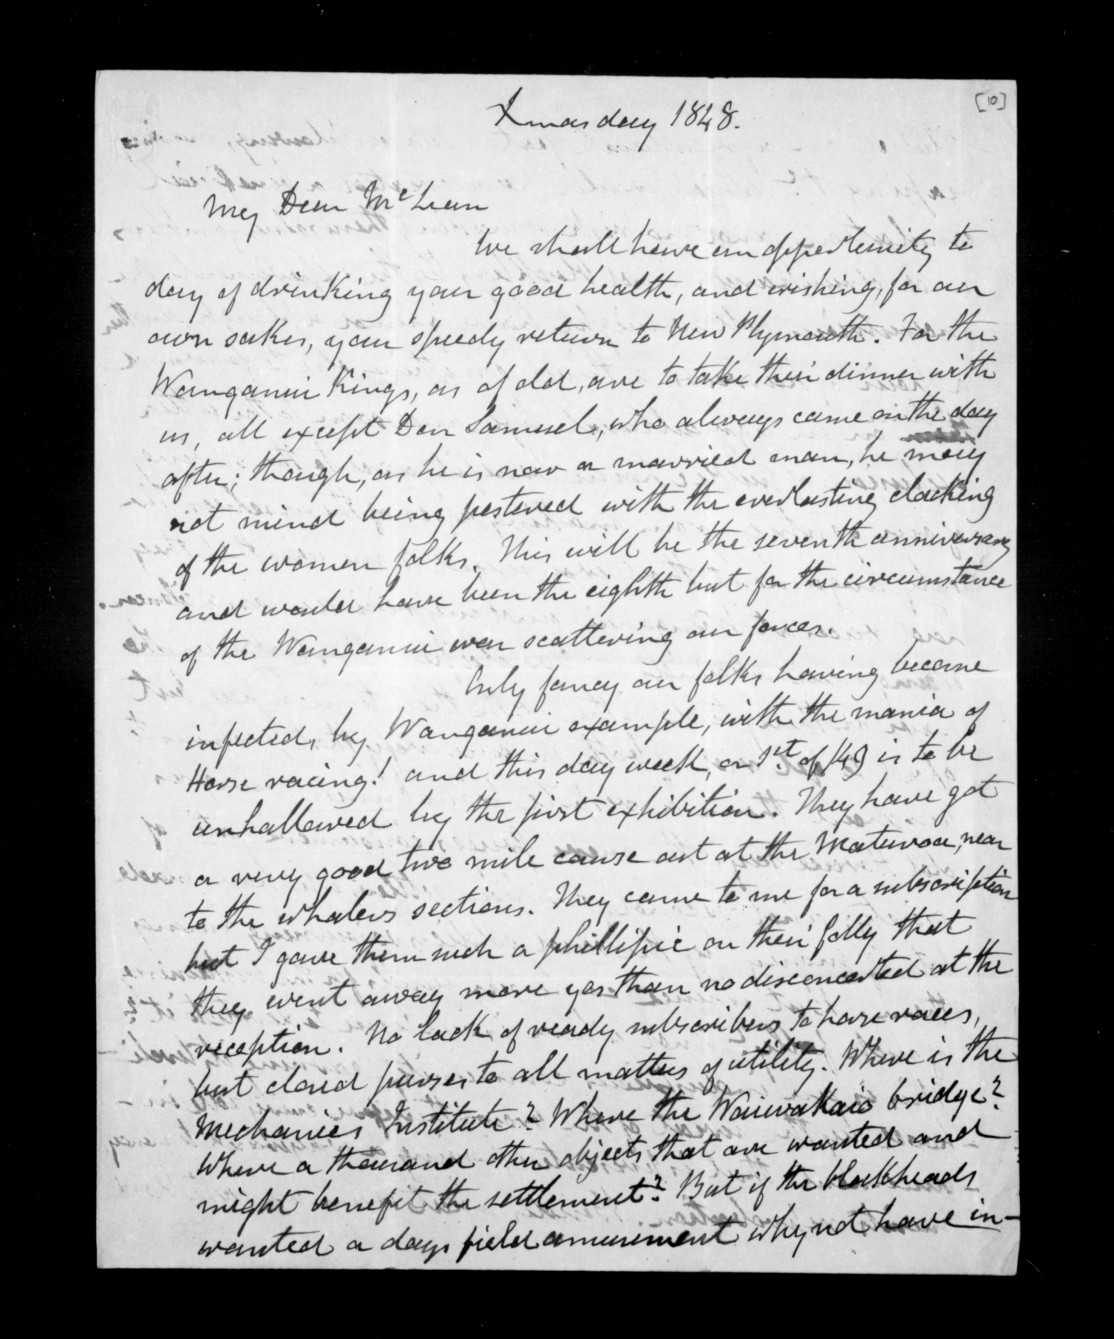 [10]
Xmas day 1848.
My Dear McLean
We shall have an opportunity to
day of drinking your good health, and wishing, for our
own sakes, your speedy return to New Plymouth. For the
Wanganui Kings, as of old, are to take their dinner with
us, all except Don Samuel, who always came on the day
after; though, as he is now a married man, he may
not mind being pestered with the everlasting clacking
of the women folks. This will be the seventh anniversary
and would have been the eighth but for the circumstance
of the Wanganui war scattering our forces.
Only fancy our folks having become
infected, by Wanganui example, with the mania of
Horse racing! and this day week, or 1st of /49 is to be
unhallowed by the first exhibition. They have got
a very good two mile course out at the Mataroa, near
to the whalers sections. They came to me for a subscription
but I gave them such a phillipic on their folly that
they went away more yes than no disconcerted at the
reception. No lack of ready subscribers to horse races,
but closed purses to all matters of utility. Where is the
Mechanics Institute? Where the Waiwakaio bridge?
Where a thousand other objects that are wanted and
might benefit the settlement? But if the blockheads
wanted a days field amusement why not have in-